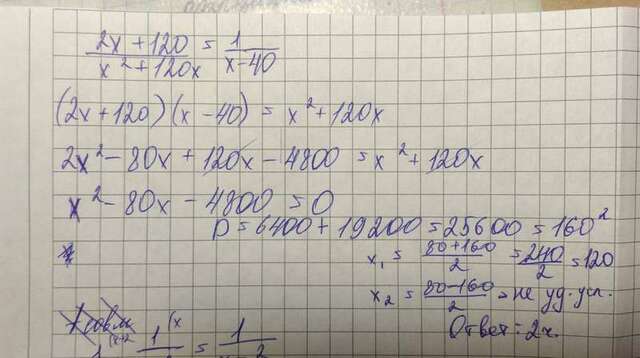 2x + 120 / x² + 120x = 1 / x - 40
(2x + 120)(x - 40) = x² + 120x
2x² - 80x + 120x - 4800 = x² + 120x
x² - 80x - 4800 = 0
D = 6400 + 19200 = 25600 = 160²
x₁ = 80+160 / 2 = 240 / 2 = 120
x₂ = 80-160 / 2 = не уд. усл.
Ответ: 2ч.